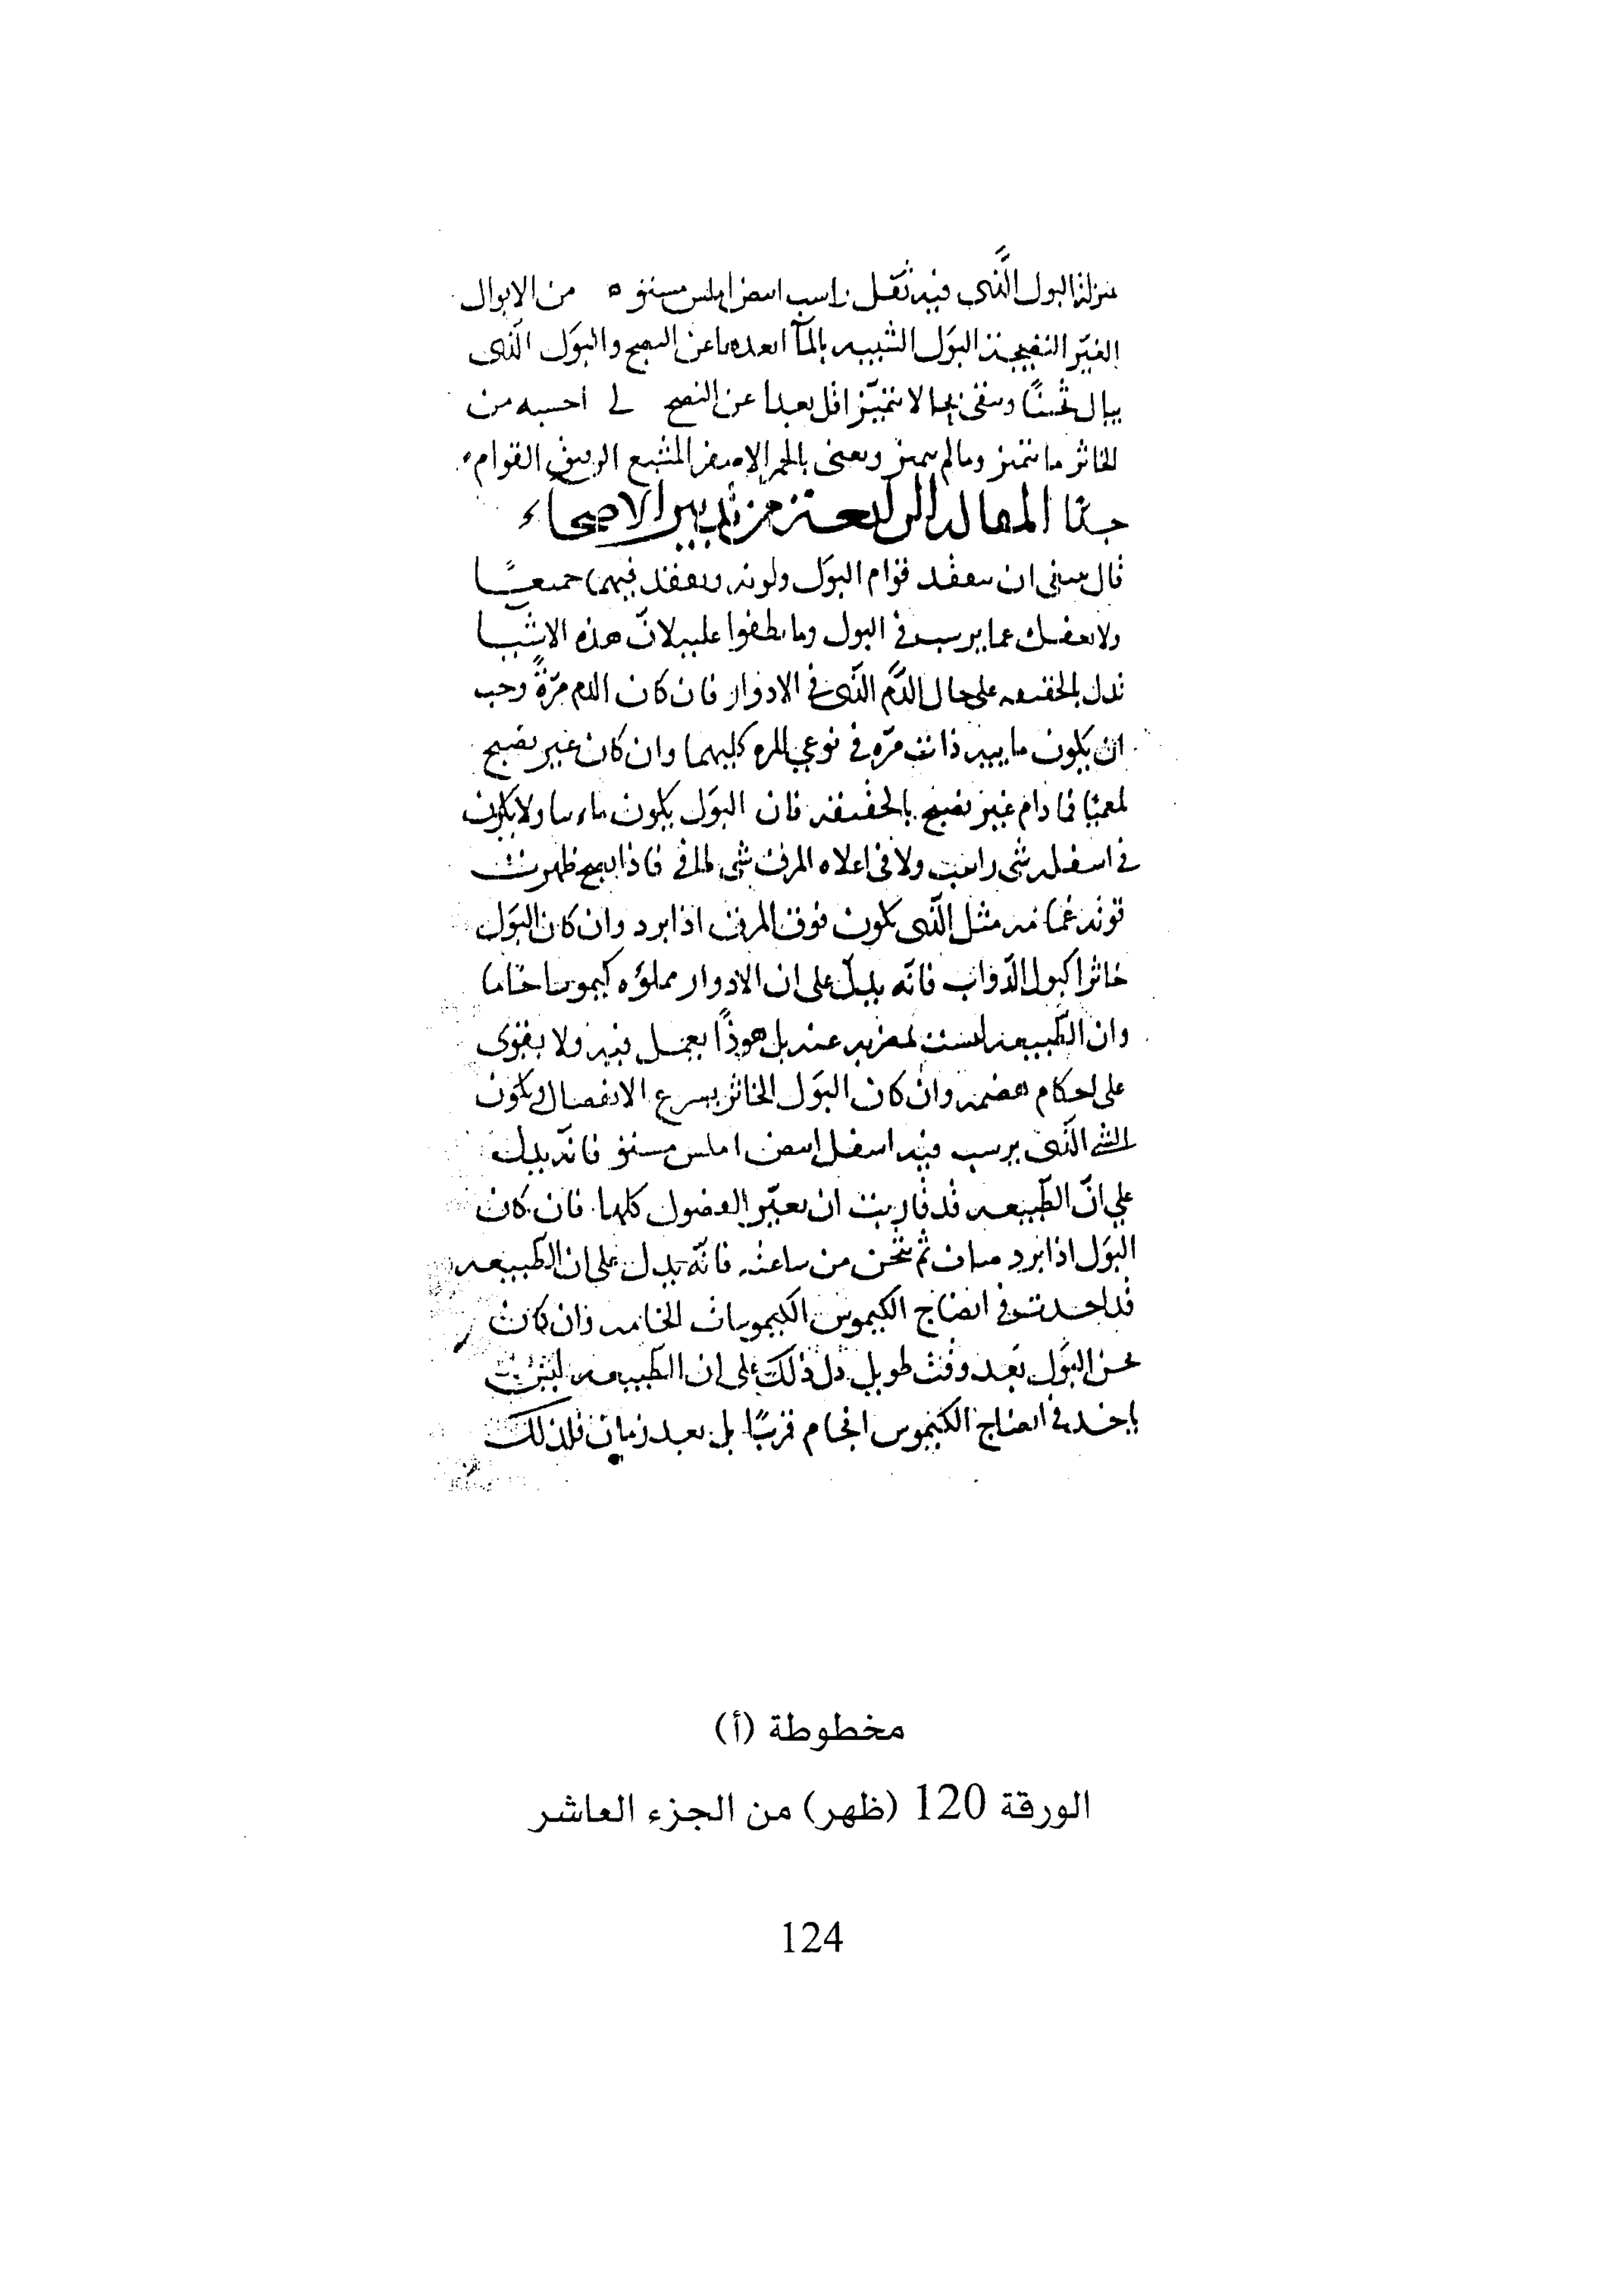 منزلة البول الذى فيه ثقل راسب ابيض املس مستو ه من الابوال
الغير النضيجة البول الشبيه بالمآ ابعدها عن النضج والبول الذى
يبال ثخينًا ويبقى بحالا يتميّز اقل بعدا عن النضج لى احسبه من
الخاثر ما يتميز وما لم يتميز ويعنى الاصفر المشبع القوام
المقاله الرابعة من تدبير الاصحاء
قال ينبغى ان يتفقد قوام البول ولونه ويتفقد فيهما جميعًا
ولا عما يرسب فى البول وما يطفوا عليه لانّ هذه الاشيا
تدل بالحقيقه على حال الدّم الذى فى الادوار فان كان الدم مرّةً وجب
ان يكون ما فى نوعي المره كليهما وان كان غير نضيج
فما دام غير نضيج بالحقيقة فان البول يكون ماءيا ولا يكون
فى اسفله شى راسب ولا فى اعلاه شى طافى فاذا نضج ظهرت
فوقه غمامه مثل الذى يكون فوق المرق اذا برد وان كان البول
خاثرا كبول الدّواب فانّه يدل على ان الادوار مملوّه كيموسا خاما
وان الطّبيعه ليست عنه بل هوذا يعمل فيه ولا يقوى
على احكام هضمه وان كان البول الخاثر يسرع الانفصال ويكون
الشى الذى يرسب فيه اسفل ابيض املس مستو فانّه يدل
علي انّ الطّبيعه قد قاربت ان الفضول كلها فان كان
البول اذا برد ثم ثخن من ساعته فانّه يدل على ان الطبيعه
قد اخدت فى انضاج الكيموس الكيموسات الخامه وان كان
ثخن البول بعد وقت طويل دل ذلك على ان الطّبيعه ليست
ياخد فى انضاج الكيموس الخام قربًا بل بعد زمان فلذلك
مخطوطة (أ)
الورقة 120 (ظهر) من الجزء العاشر
124